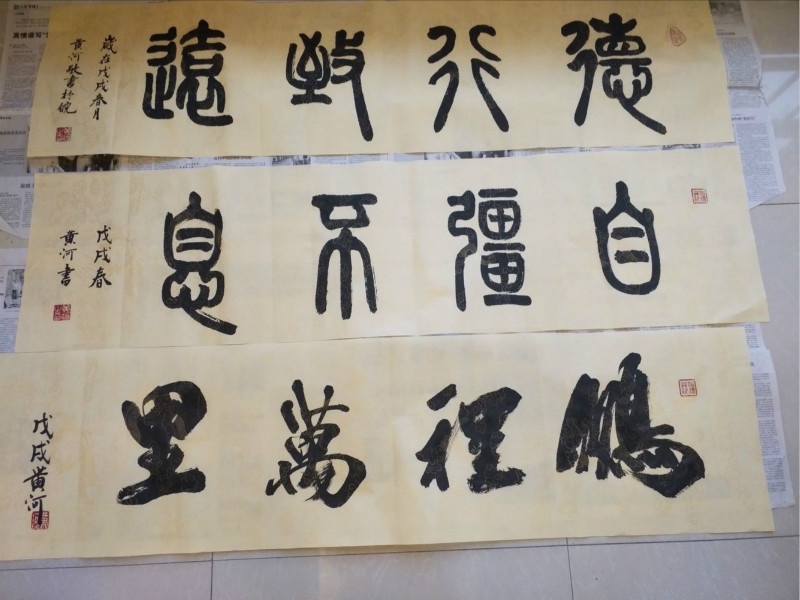 德行致遠
歲在戊戌春月
黄河敬書於皖
自彊不息
戊戌春
黄河書
鵬程萬里
戊戌黄河